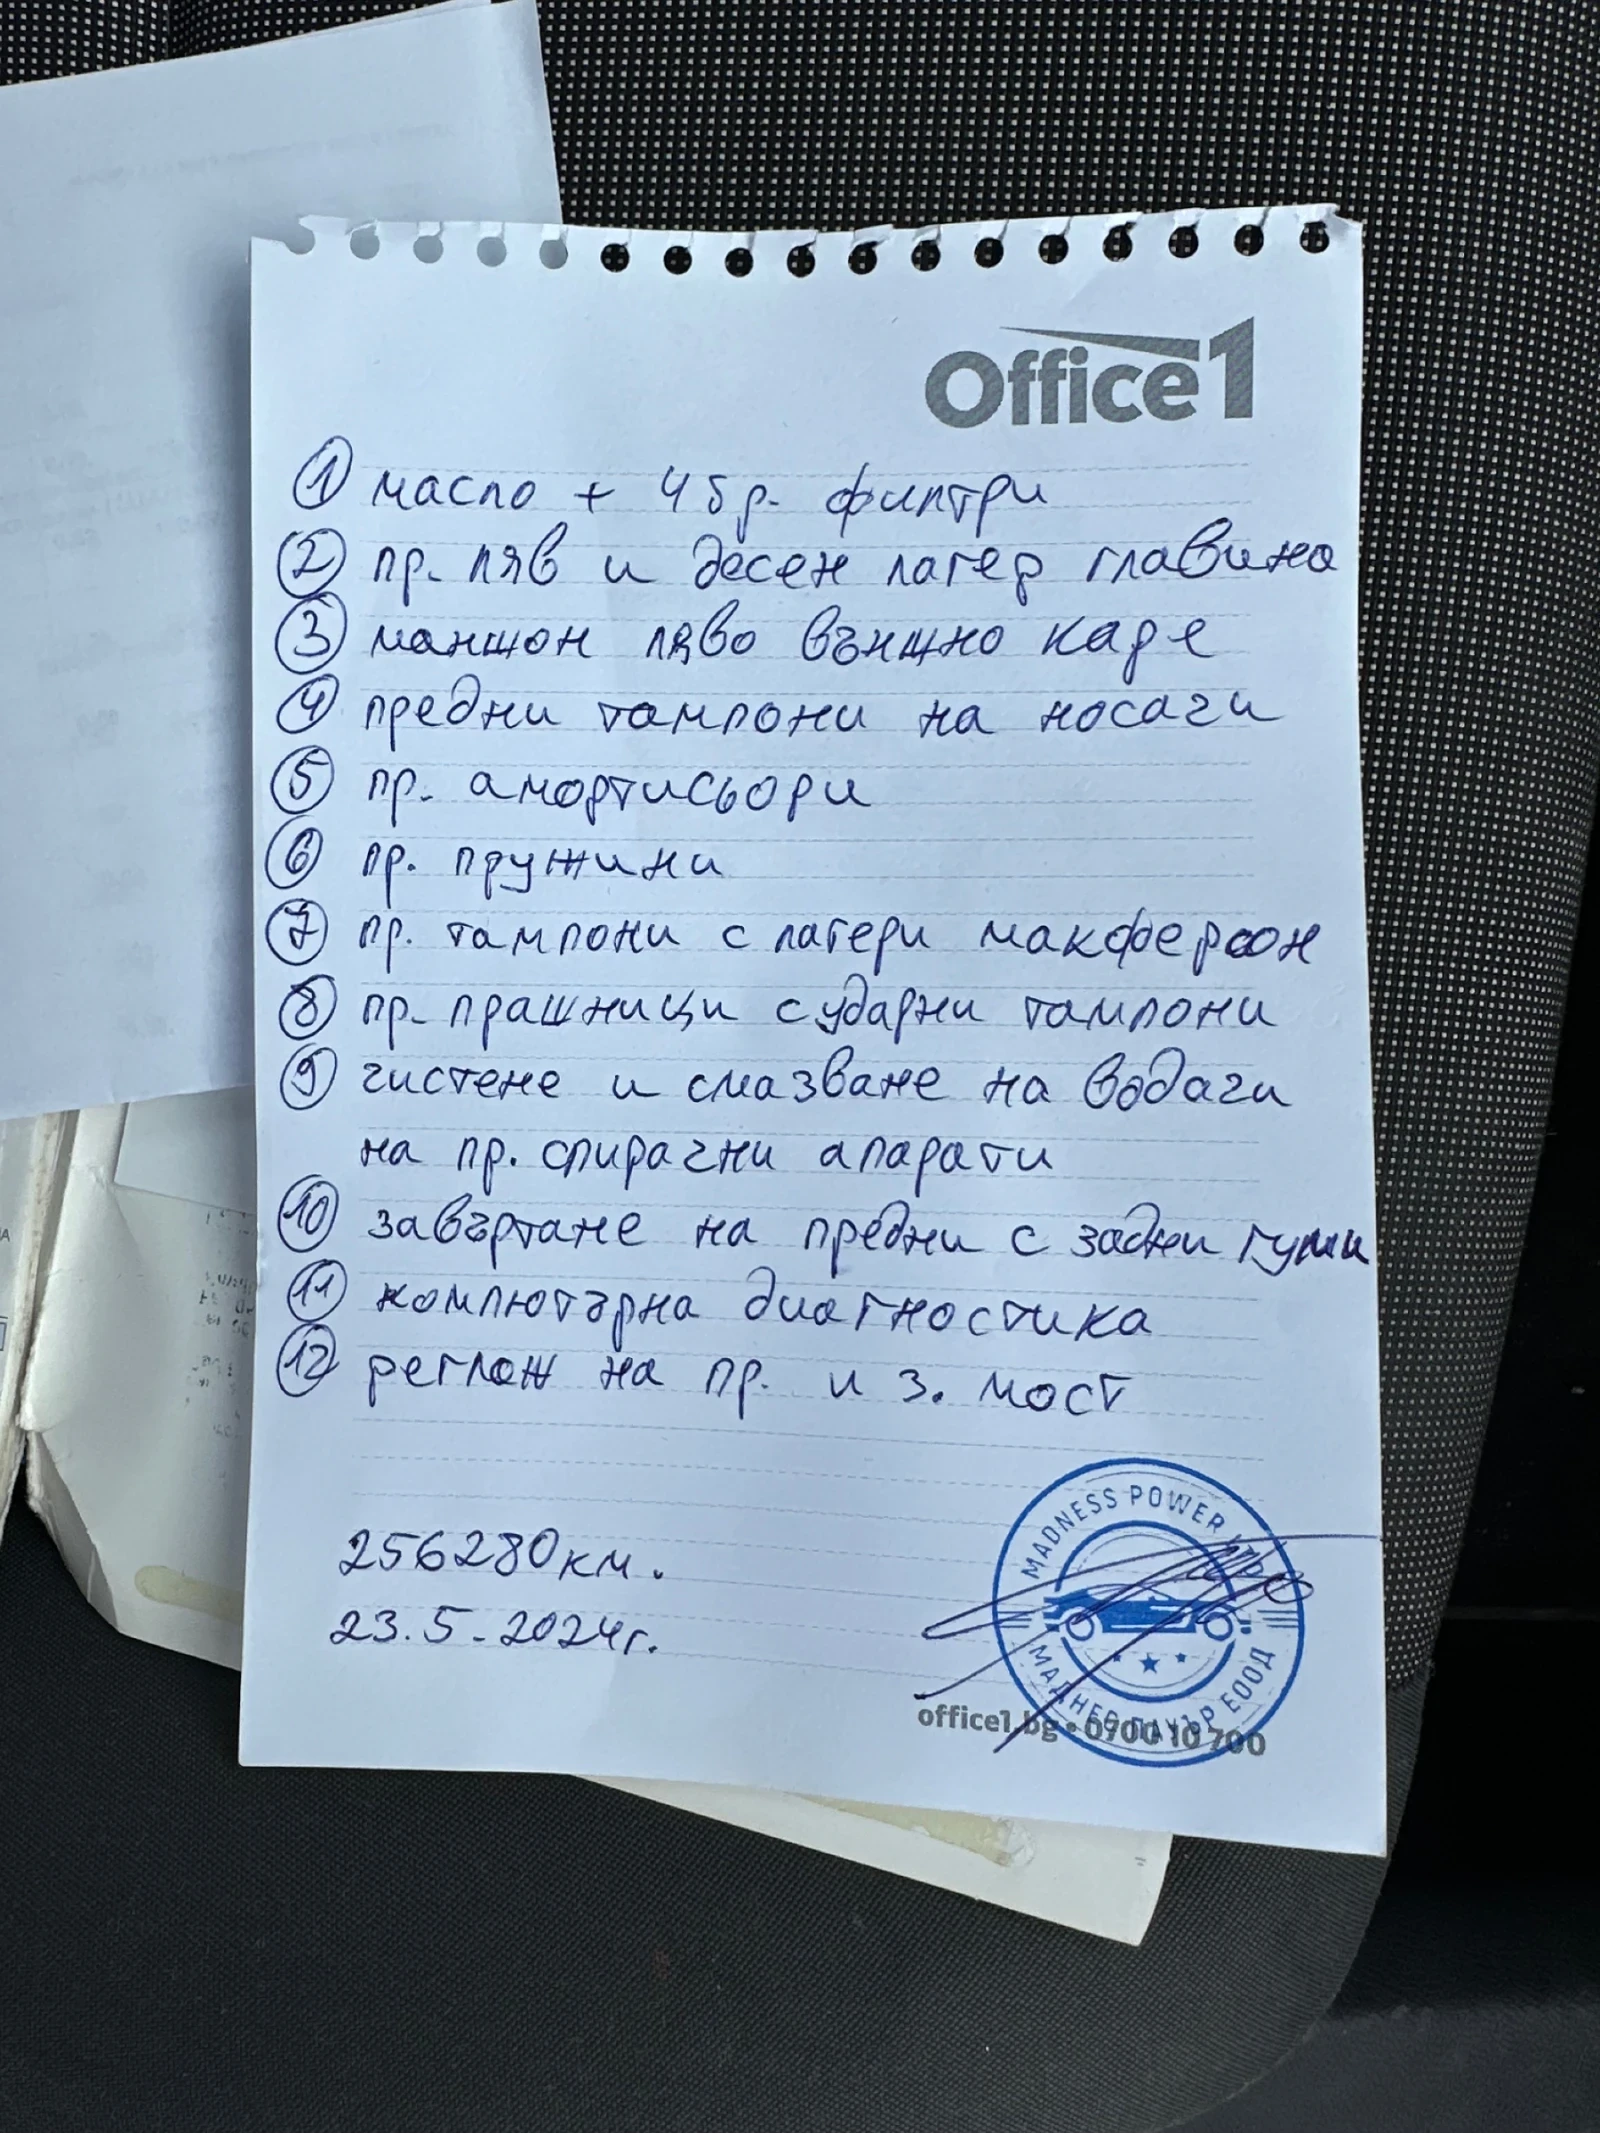 Office1
1 масло + 4 бр. филтри
2 пр. ляв и десен лагер главина
3 маншон ляво външно каре
4 предни тампони на носачи
5 пр. амортисьори
6 пр. пружини
7 пр. тампони с лагери макферсон
8 пр. прашници с ударни тампони
9 чистене и смазване на водачи
на пр. спирачни апарати
10 завъртане на предни с задни гуми
11 компютърна диагностика
12 реглаж на пр. и з. мост
256280км.
23.5.2024г.
MADNESS POWER LTD
МАДНЕС ПАУЪР ЕООД
office1.bg • 0700 10 700